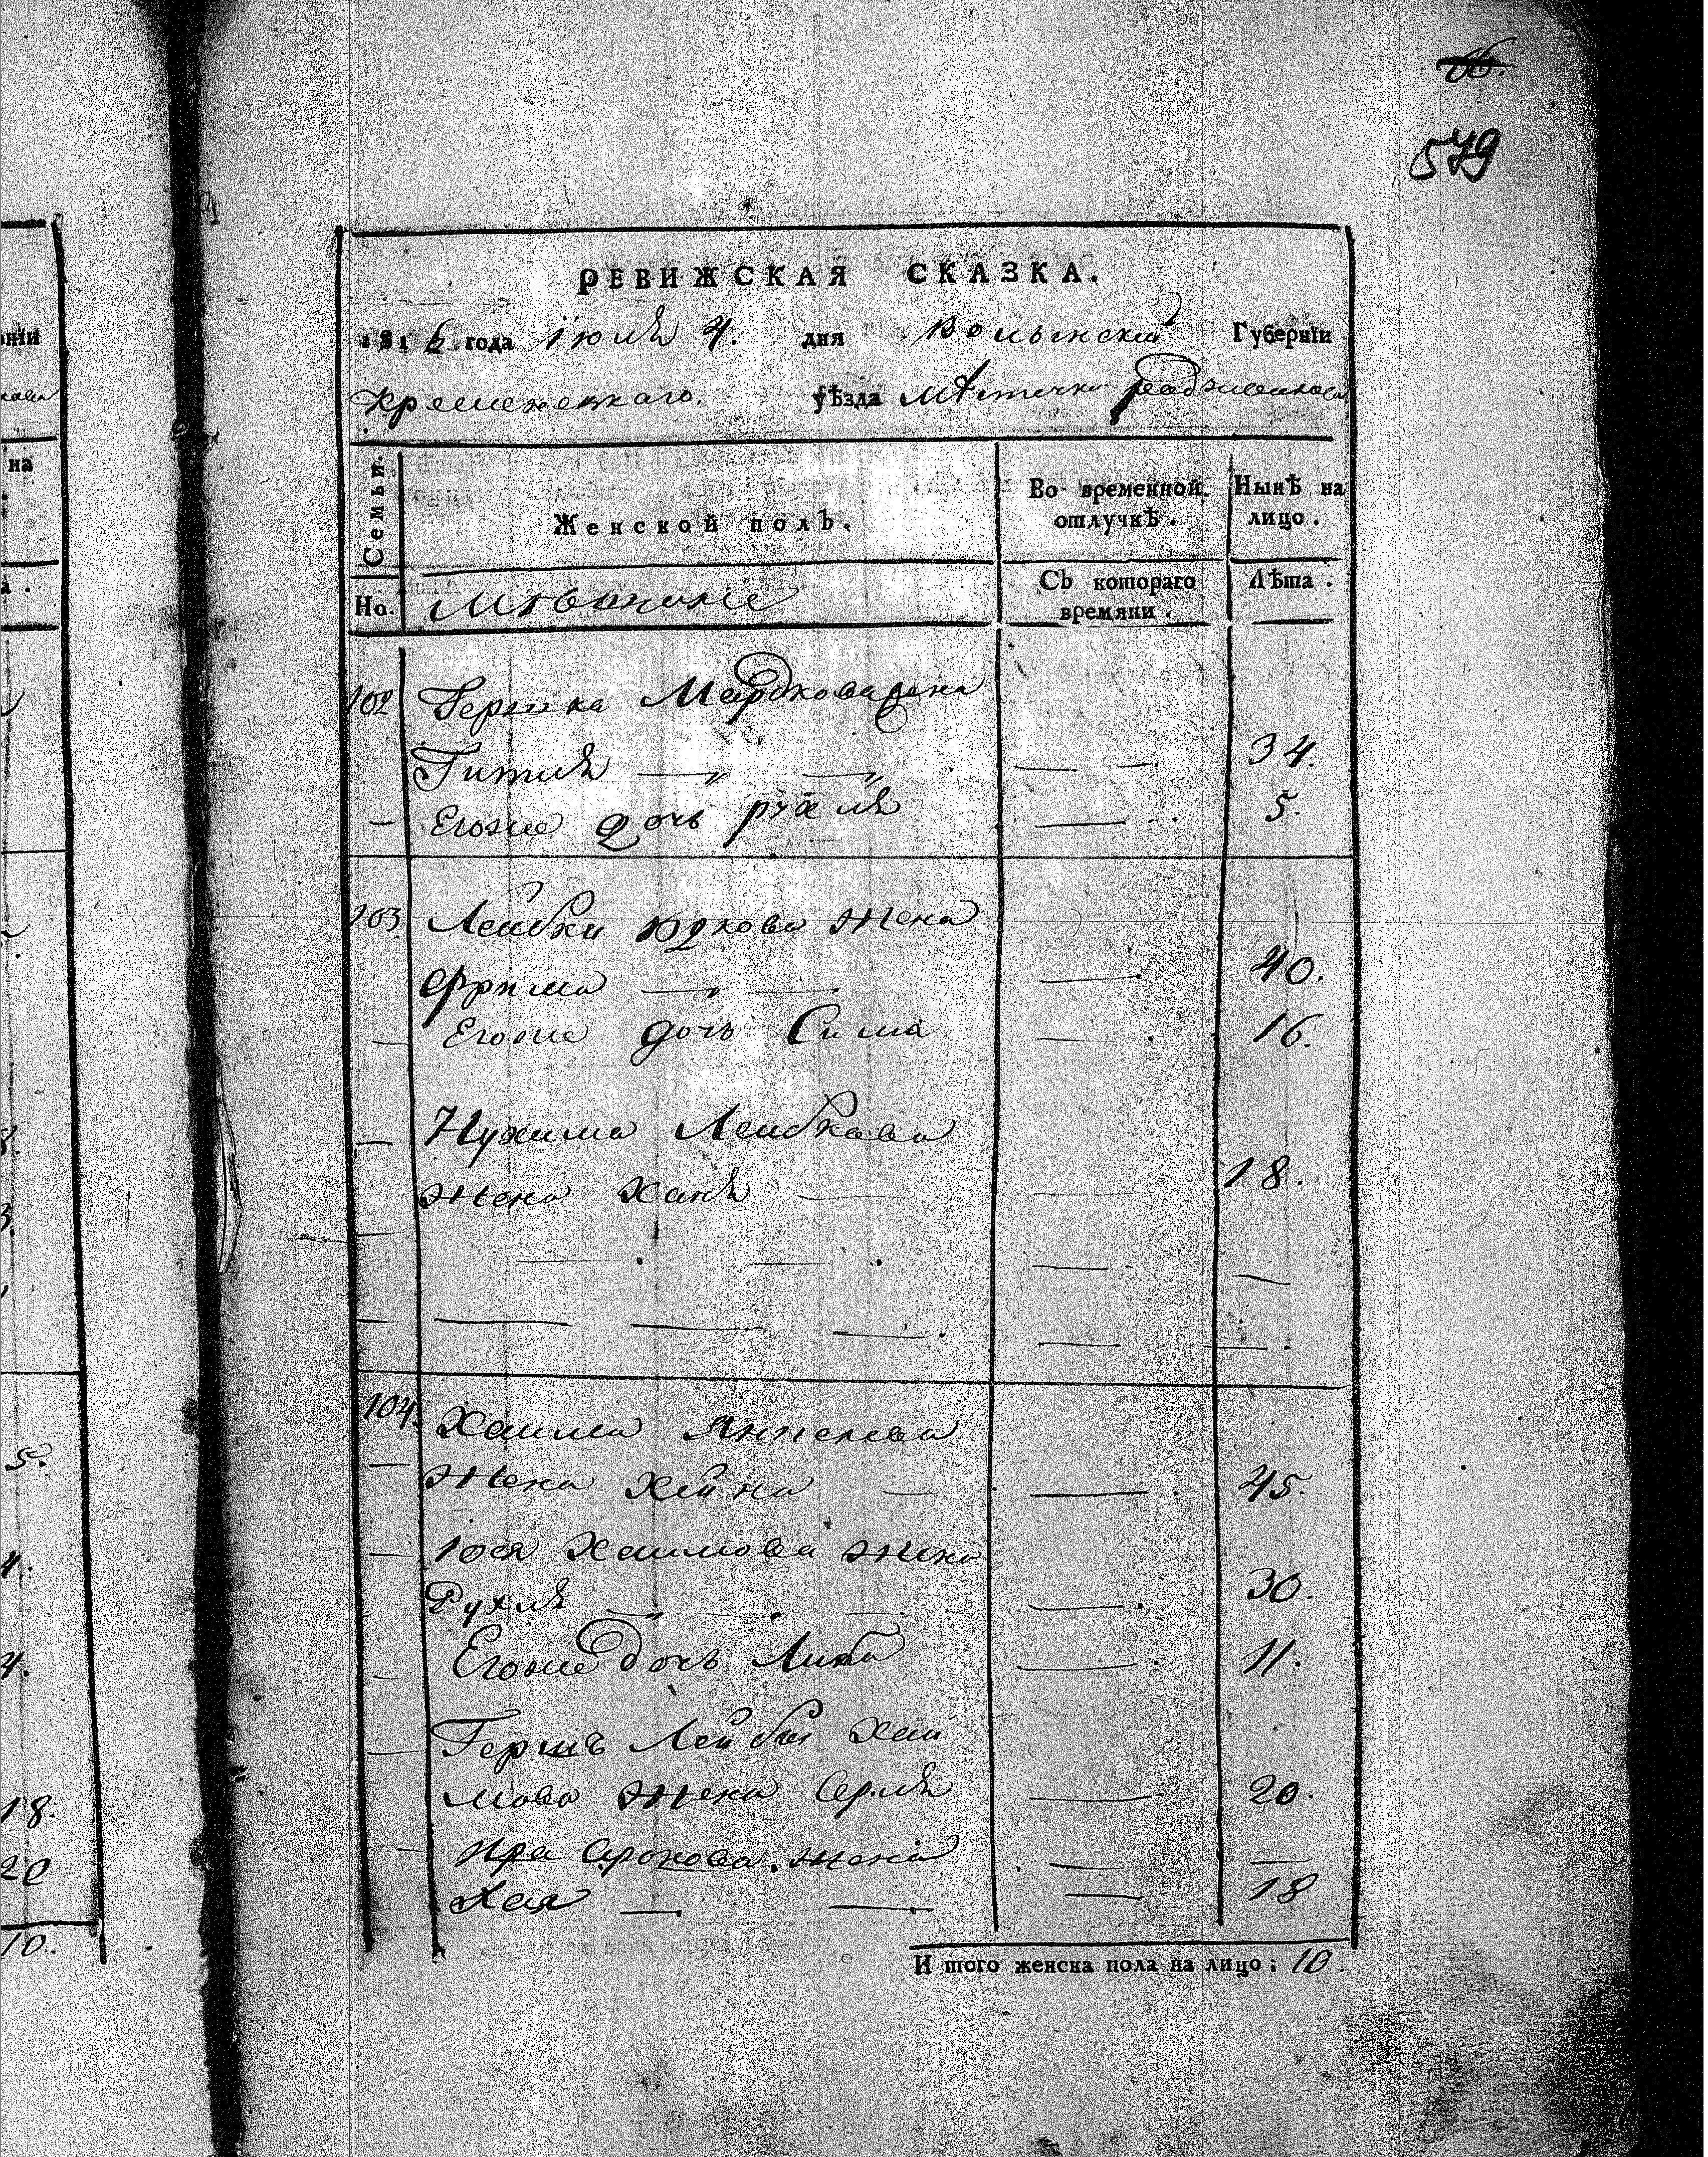 66.
579
РЕВИЖСКАЯ СКАЗКА.
1816 года Iюля 4. дня Волынской Губернїи
Кременецкаго. уѣзда Мѣстечка
Семьи. Женской полъ. Во временной отлучкѣ. Нынѣ на лицо.
Но. Съ котораго времяни. Лѣта.
102 Гершка Мардковажена
Гитля — — — 34.
— Егоже дочь Рухля — 5.
103. Лейбки Юдкова жена
Фрима — — — 40.
— Егоже дочь Сима — 16.
— Нухима Лейбкова
жена Ханя — — 18.
— — — — —
— — — — — —
104. Хаима Янкелева
— жена Хейна — — 45.
— Иося Хаимова жена
Рухля — — — — 30.
— Егоже дочь Либа — 11.
— Гершъ Лейбы Хаи
мова жена Серля — 20.
— Сросова жена — —
Хая — — — 18
И того женска пола на лицо: 10.
нїи
на
5.
4.
18.
20
10.